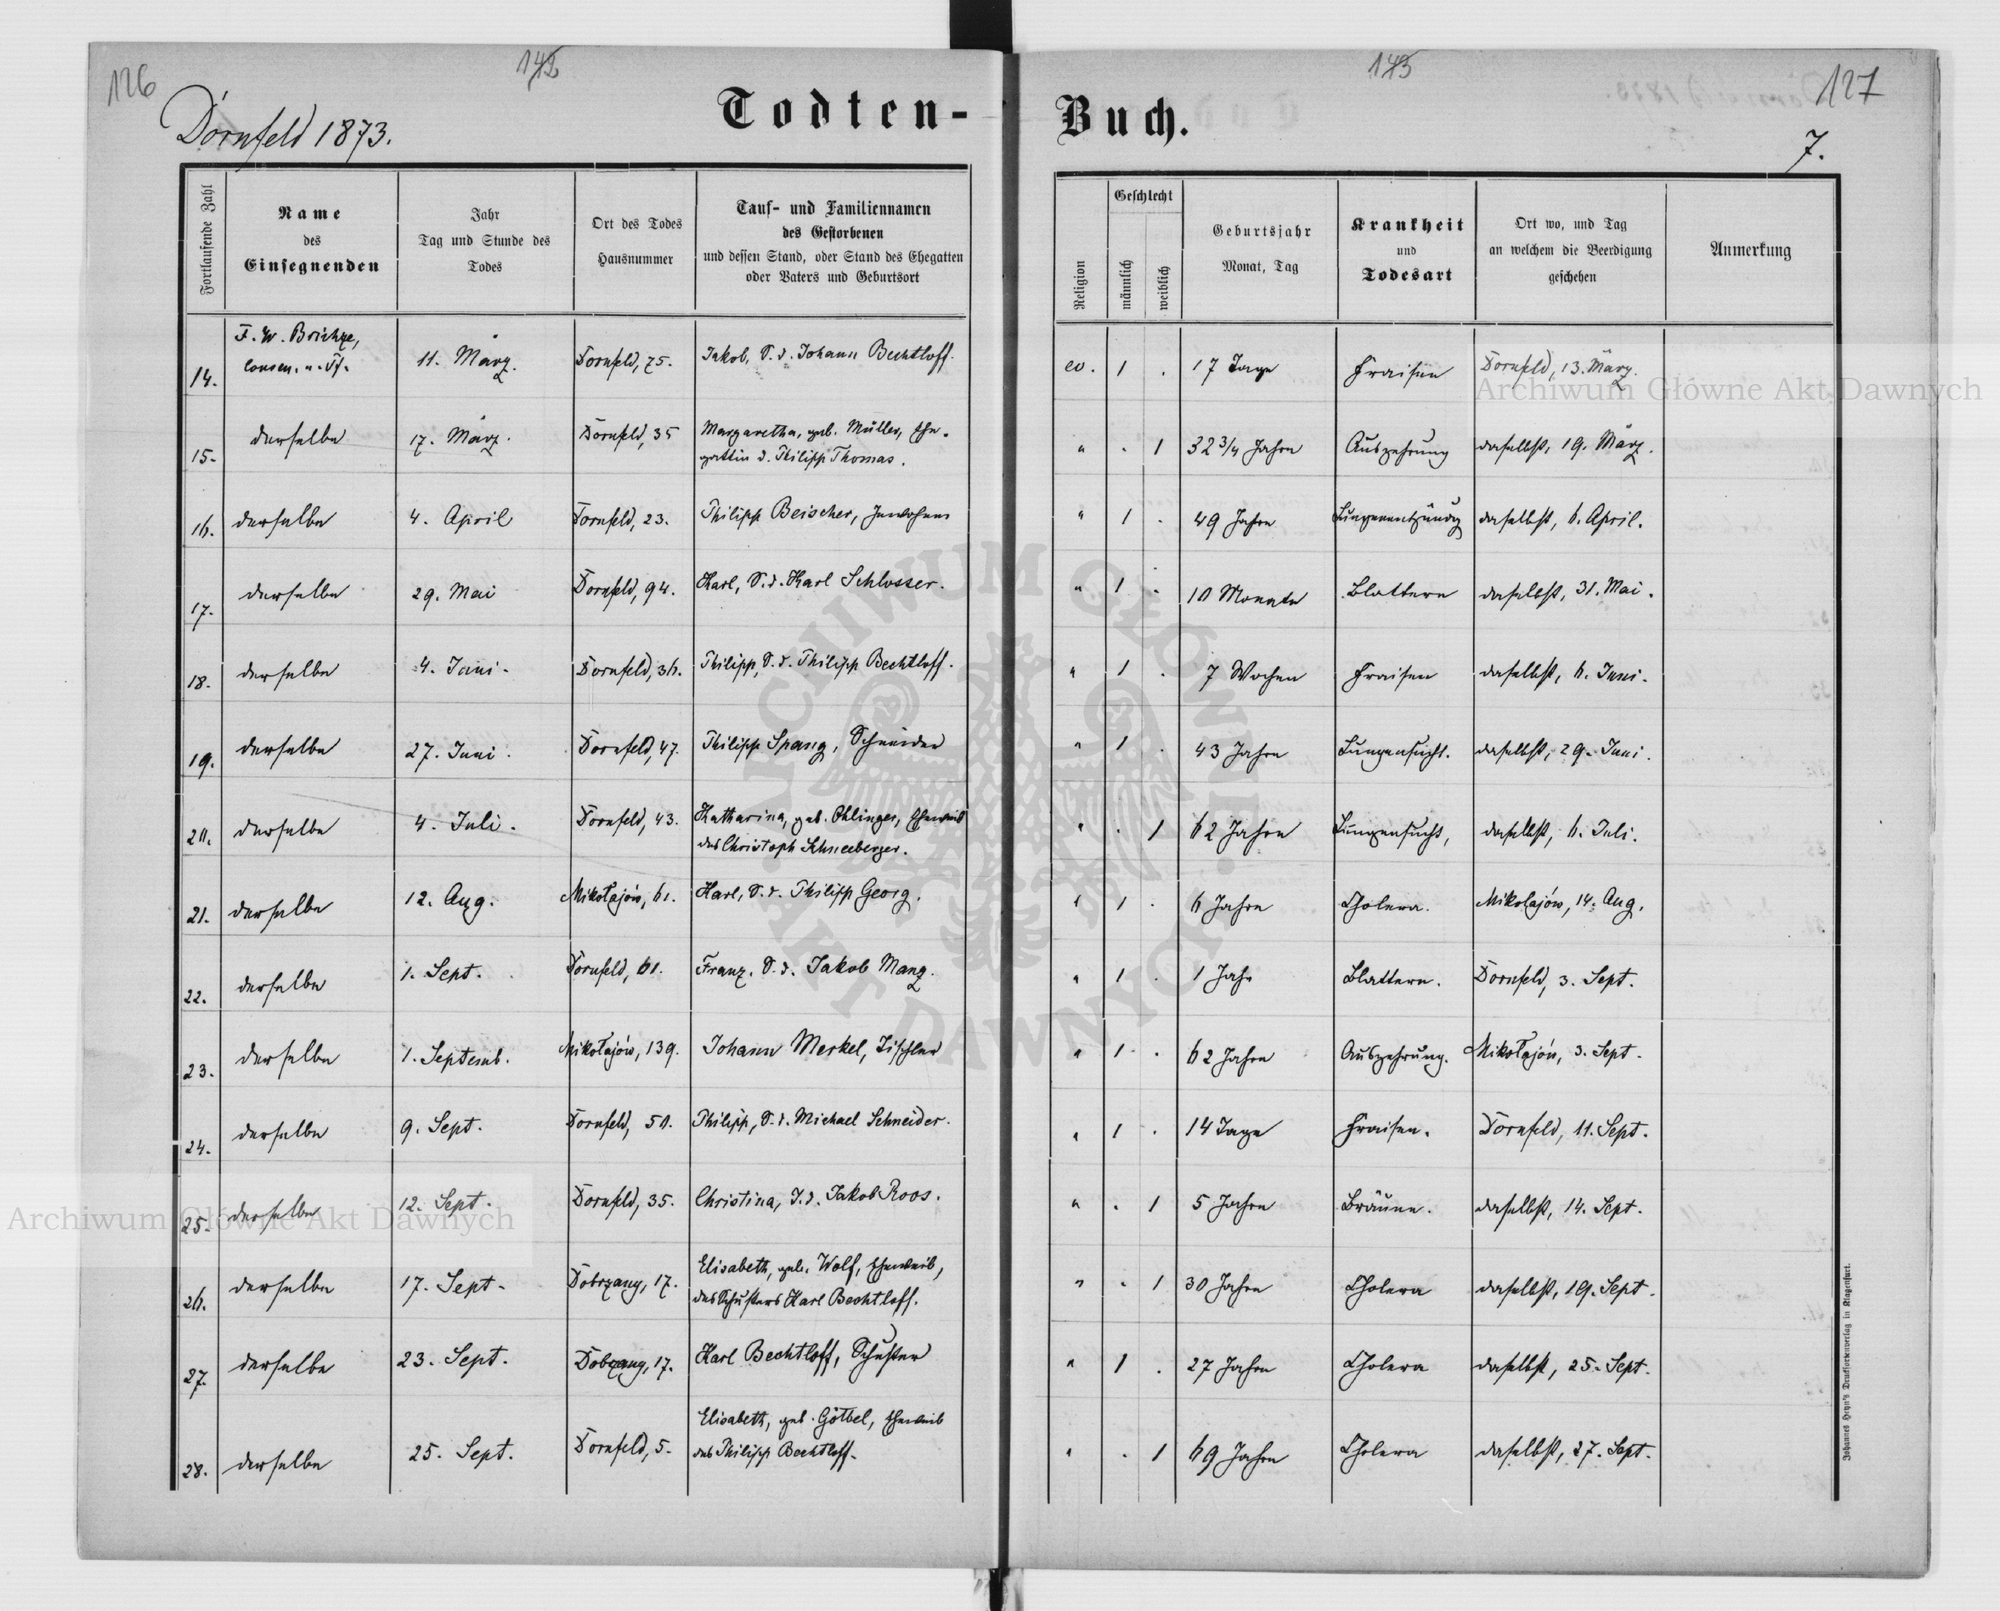 126
142
143
127
Dornfeld 1873.
Todten-
Buch.
7.
Fortlaufende Zahl
Name
des
Einsegnenden
Jahr
Tag und Stunde des
Todes
Ort des Todes
Hausnummer
Tauf- und Familiennamen
des Gestorbenen
und dessen Stand, oder Stand des Ehegatten
oder Vaters und Geburtsort
Religion
Geschlecht
männlich
weiblich
Geburtsjahr
Monat, Tag
Krankheit
und
Todesart
Ort wo, und Tag
an welchem die Beerdigung
geschehen
Anmerkung
14. F. W. 11. März. Dornfeld, 75. Jakob, S. d. Johann Bechtloff. ev. 1 . 17 Tage Fraisen Dornfeld, 13. März.
15. derselbe 17. März. Dornfeld, 35 Margaretha, geb. Müller, Ehe-
gattin d. Philipp Thomas. " . 1 32 3/4 Jahre Auszehrung daselbst, 19. März.
16. derselbe 4. April Dornfeld, 23. Philipp Beischer, " 1 . 49 Jahre Lungenentzündg daselbst, 6. April.
17. derselbe 29. Mai Dornfeld, 94. Karl, S. d. Karl Schlosser. " 1 . 10 Monate Blattern daselbst, 31. Mai.
18. derselbe 4. Juni. Dornfeld, 36. Philipp, S. d. Philipp Bechtloff. " 1 . 7 Wochen Fraisen daselbst, 6. Juni.
19. derselbe 27. Juni. Dornfeld, 47. Philipp Spang, Schneider " 1 . 43 Jahre Lungensucht. daselbst, 29. Juni.
20. derselbe 4. Juli. Dornfeld, 43. Katharina, geb. Ohlinger, Eheweib
des Christoph Schneeberger. " . 1 62 Jahre Lungensucht, daselbst, 6. Juli.
21. derselbe 12. Aug. Mikołajów, 61. Karl, S. d. Philipp Georg. " 1 . 6 Jahre Cholera. Mikołajów, 14. Aug.
22. derselbe 1. Sept. Dornfeld, 61. Franz, S. d. Jakob Manz. " 1 . 1 Jahr Blattern. Dornfeld, 3. Sept.
23. derselbe 1. Septemb. Mikołajów, 139. Johann Merkel, Tischler " 1 . 62 Jahre Auszehrung. Mikołajów, 3. Sept.
24. derselbe 9. Sept. Dornfeld, 50. Philipp, S. d. Michael Schneider. " 1 . 14 Tage Fraisen. Dornfeld, 11. Sept.
25. derselbe 12. Sept. Dornfeld, 35. Christina, T. d. Jakob Roos. " . 1 5 Jahre Bräune. daselbst, 14. Sept.
26. derselbe 17. Sept. Dobrzany, 17. Elisabeth, geb. Wolf, Eheweib,
des Schusters Karl Bechtloff. " . 1 30 Jahre Cholera daselbst, 19. Sept.
27. derselbe 23. Sept. Dobrzany, 17. Karl Bechtloff, Schuster " 1 . 27 Jahre Cholera daselbst, 25. Sept.
28. derselbe 25. Sept. Dornfeld, 5. Elisabeth, geb. Göttel, Eheweib
des Philipp Bechtloff. " . 1 69 Jahre Cholera daselbst, 27. Sept.
Johannes Heyn's Drucksortenverlag in Klagenfurt.
Archiwum Główne Akt Dawnych
Archiwum Główne Akt Dawnych
ARCHIWUM GŁÓWNE AKT DAWNYCH